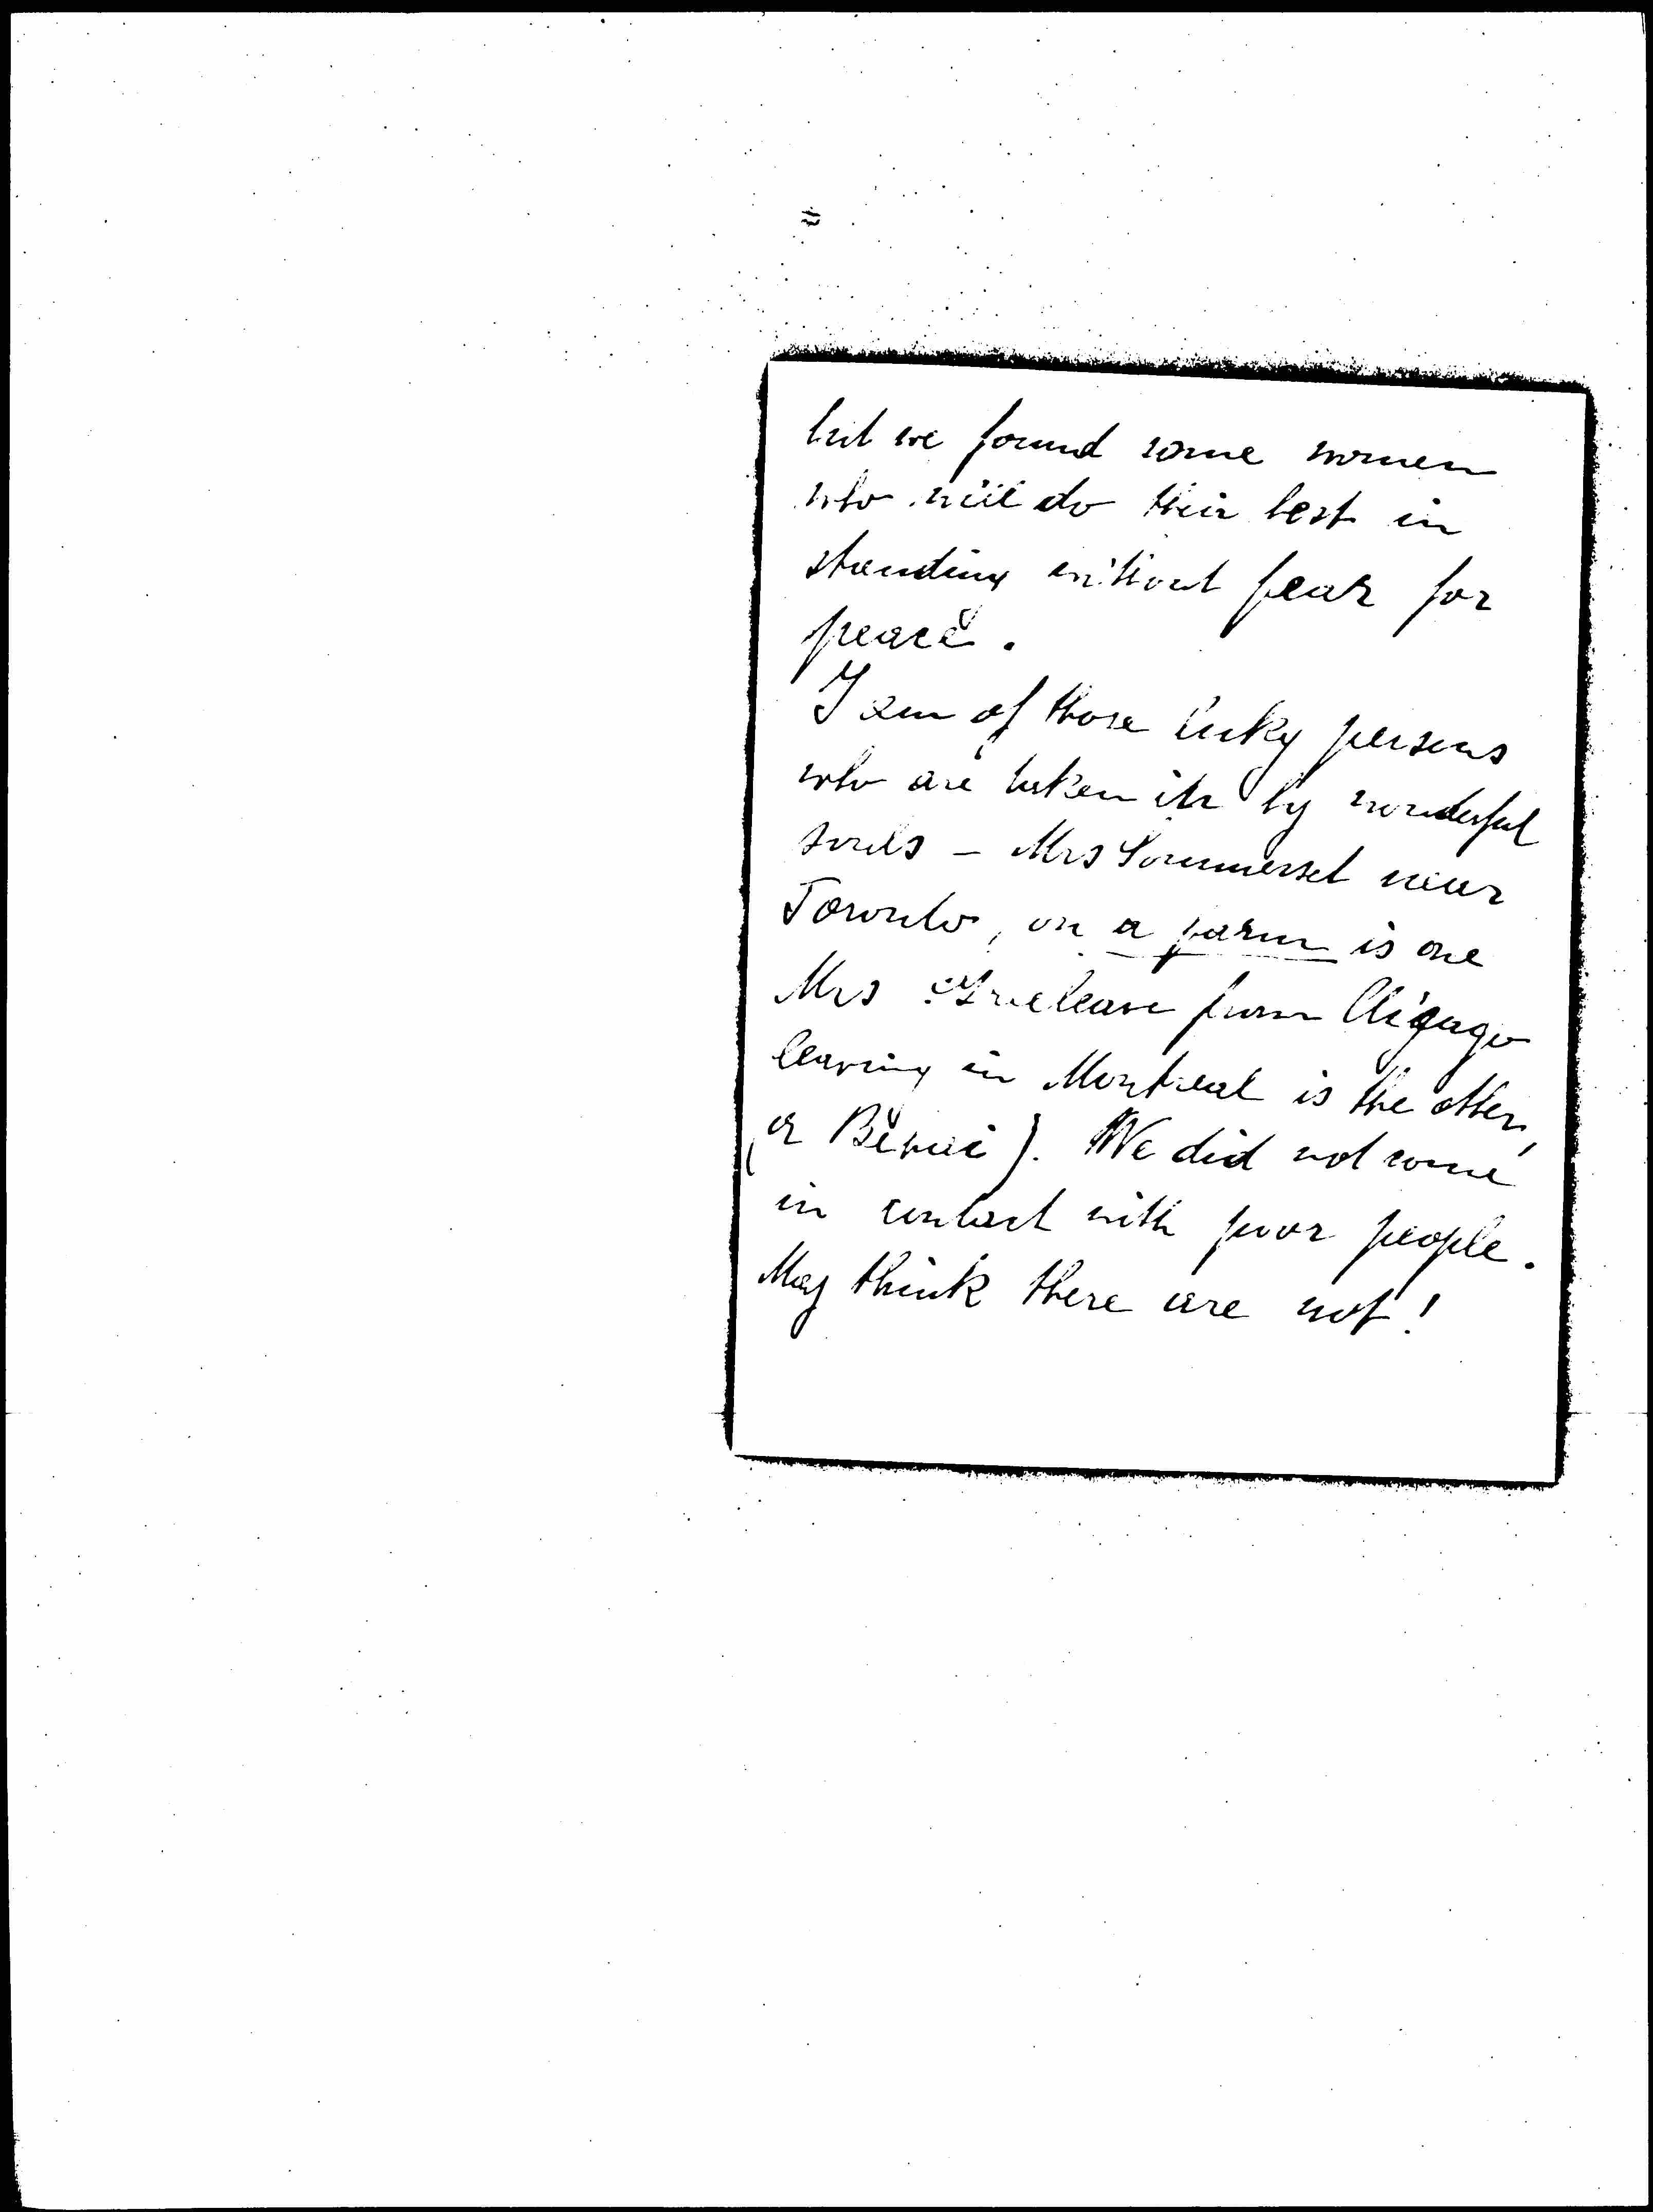 but we found some women
who will do their best in
standing without fear for
peace.
I am of those lucky persons
who are taken in by wonderful
souls – Mrs Sommerset near
Toronto, on a farm is one
Mrs Truelove from Chigago
leaving in Montreal is the other,
(a
We did not come
in contact with poor people.
May think there are not!